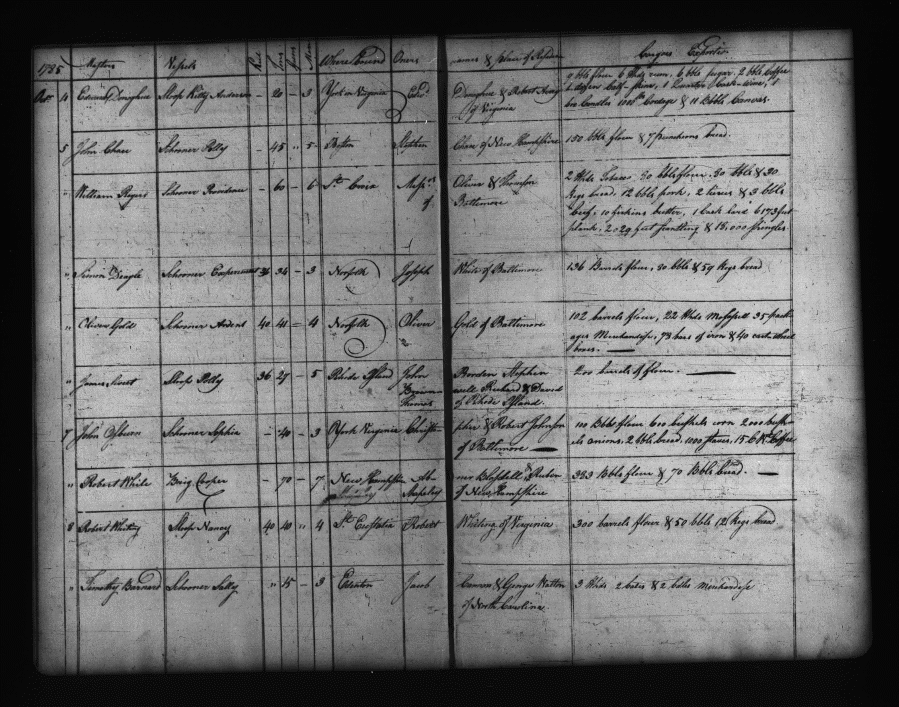 1785 Masters Vessels Feet Tons Guns Men Where Bound Owners Names & place of Residence Cargoes Exportion
9 bbls flour 6 Hhds corn, 6 bbls sugar, 2 bbls Coffee
Oct. 4 Edmund Donoghue Sloop Kitty Anderson – 20 – 3 York in Virginia Donoghue & Robert
of Virginia
box Candles Cordage & 11 Bolts Canvas.
5 John Chase Schooner Polly – 45 " 5 Boston Stephen Chase of New Hampshire 150 bbls flour & 7 puncheons bread.
" William Rogers Schooner Providence – 60 – 6 St. Croix Messrs. Oliver & Thompson
of Baltimore
2 Hhds Tobacco 30 bbls flour, 30 bbls & 30
Kegs bread, 12 bbls pork, 2 tierces & 3 bbls
beef, 10 firkins butter, 1 Cask lard 6173 feet
plank, 2029 feet scantling & 15,000 shingles
" Simon Deagle Schooner 36 34 – 3 Norfolk Joseph White of Baltimore 136 Barrels flour, 30 bbls & 59 Kegs bread
" Oliver Gold Schooner Ardent 40 41 – 4 Norfolk Oliver Gold of Baltimore
102 barrels flour, 22 Hhds Molasses 35 pack-
ages Merchandise, 78 bars of iron & 40 cart wheel
boxes.
" James Sloop Polly 36 29 – 5 Rhode Island John
Thomas
Borden Stephen
& David
of Rhode Island.
200 barrels of flour.
7 John Osburn Schooner Sophia – 40 – 3 York Virginia Christo-
pher & Robert Johnson
of Baltimore
100 Bbls flour 600 bushels corn 2000 bush-
els 2 bbls bread, 1000 staves, Coffee
" Robert White Brig Cooper – 70 – 7 New Hampshire
of New Hampshire
333 Bbls flour & 70 Bbls bread.
8 Robert Whiting Sloop Nancy 40 40 " 4 St. Eustatia Robert Whiting of Virginia 300 barrels flour & 50 bbls 121 Kegs bread
" Timothy Barnard Schooner Sally " 15 – 3 Edenton Jacob & George Hatton
of North Carolina
3 Hhds 2 boxes & 2 bales merchandise